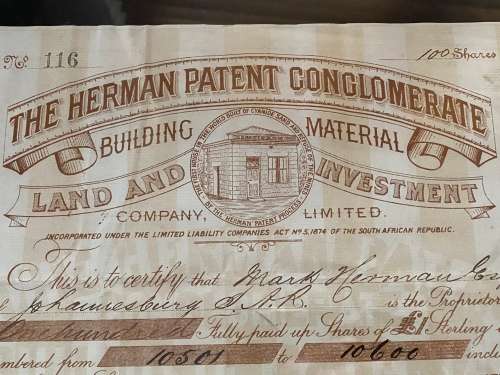 No. 116 100 Shares
THE HERMAN PATENT CONGLOMERATE
BUILDING MATERIAL
LAND AND INVESTMENT
THE FIRST HOUSE IN THE WORLD BUILT OF CYANIDE SAND AND
BY THE HERMAN PATENT PROCESS
COMPANY, LIMITED.
INCORPORATED UNDER THE LIMITED LIABILITY COMPANIES ACT No. 5, 1874 OF THE SOUTH AFRICAN REPUBLIC.
This is to certify that Mark Herman Esq
Johannesburg S.A.R. is the Proprietor
Fully paid up Shares of £1 Sterling
mbered from 10501 to 10600 incl